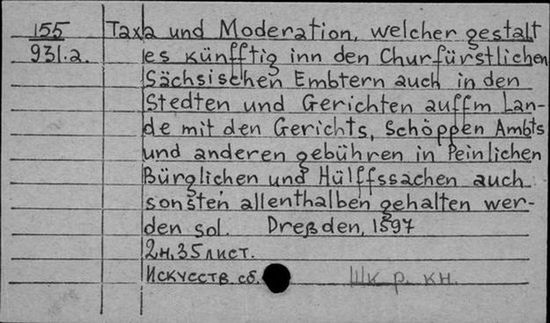 155 Taxa und Moderation, welcher gestalt
931.a. es künfftig inn den Churfürstlichen
Sächsischen Embtern auch in den
Stedten und Gerichten auffm Lan-
de mit den Gerichts, Schöppen Ambts
und anderen gebühren in Peinlichen
Bürglichen und Hülffssachen auch
sonsten allenthalben gehalten wer-
den sol. Dreßden, 1597
2н. 35 лист.
Искусств сб. Шк. р. кн.